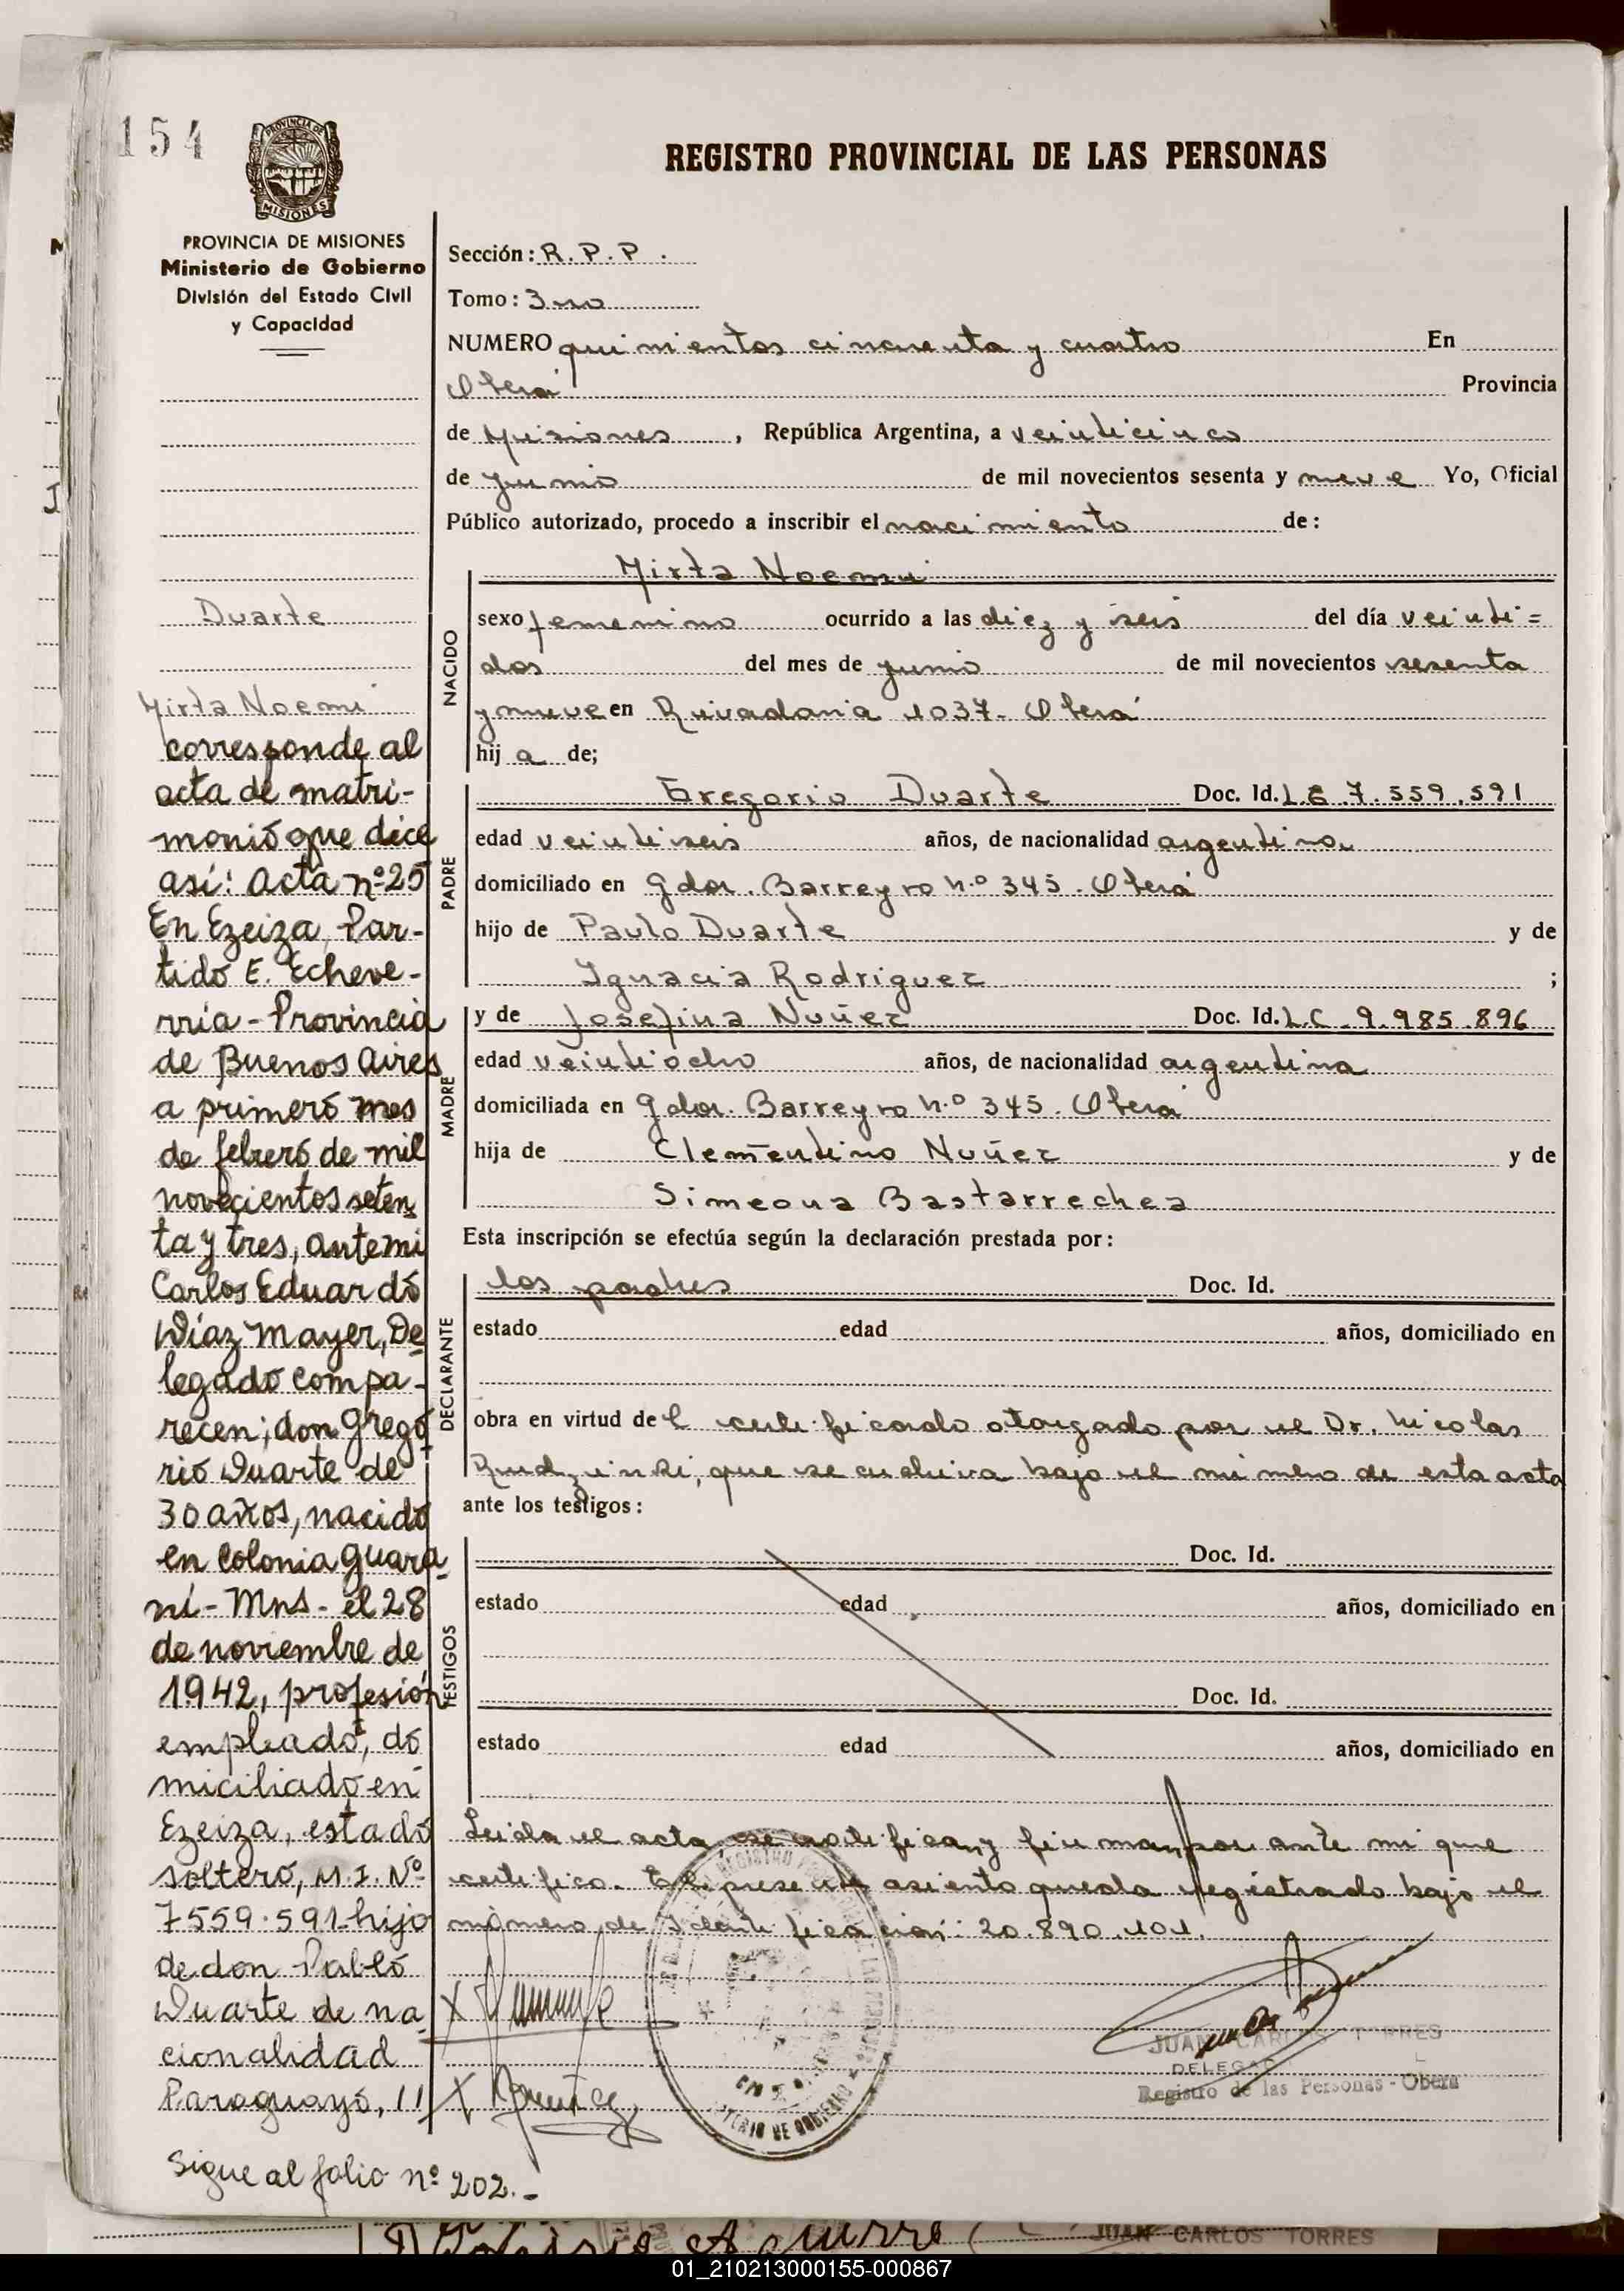 154
PROVINCIA DE
MISIONES
REGISTRO PROVINCIAL DE LAS PERSONAS
PROVINCIA DE MISIONES
Ministerio de Gobierno
División del Estado Civil
y Capacidad
Duarte
Mirta Noemi
corresponde al
acta de matri-
monio que dice
así: Acta nº 25
En Ezeiza, Par-
tido E. Echeve-
rría - Provincia
de Buenos Aires
a primero mes
de febrero de mil
novecientos seten
ta y tres, ante mi
Carlos Eduardo
Díaz Mayer, De
legado compa-
recen; don Grego
rio Duarte de
30 años, nacido
en Colonia Guara
ní - Mns - el 28
de noviembre de
1942, profesión
empleado, do
miciliado en
Ezeiza, estado
soltero, M.I. Nº
7559.591 - hijo
de don Pablo
Duarte de na
cionalidad
Paraguayo, //
Sigue al folio nº 202.-
Sección: R.P.P.
Tomo: 3ro
NUMERO quinientos cincuenta y cuatro En
Oberá Provincia
de Misiones, República Argentina, a veinticinco
de junio de mil novecientos sesenta y nueve Yo, Oficial
Público autorizado, procedo a inscribir el nacimiento de:
Mirta Noemi
NACIDO
sexo femenino ocurrido a las diez y seis del día veinti=
dos del mes de junio de mil novecientos sesenta
y nueve en Rivadavia 1037- Oberá
hija de;
PADRE
Gregorio Duarte Doc. Id. L E 7.559.591
edad veintiseis años, de nacionalidad argentina
domiciliado en Gdor. Barreyro n.º 345. Oberá
hijo de Paulo Duarte y de
Ignacia Rodriguez ;
MADRE
y de Josefina Nuñez Doc. Id. L.C. 9.985.896
edad veintiocho años, de nacionalidad argentina
domiciliada en Gdor. Barreyro n.º 345. Oberá
hija de Clementino Nuñez y de
Simeona Bastarrechea
Esta inscripción se efectúa según la declaración prestada por:
DECLARANTE
los padres Doc. Id.
estado edad años, domiciliado en
obra en virtud del certificado otorgado por el Dr. Nicolas
Rudzinski, que se archiva bajo el número de esta acta
ante los testigos:
TESTIGOS
Doc. Id.
estado edad años, domiciliado en
Doc. Id.
estado edad años, domiciliado en
Leida el acta se ratifican y firman por ante mi que
certifico. El presente asiento queda registrado bajo el
número de Identificación: 20.890.101.
JUAN CARLOS TORRES
DELEGADO
Registro de las Personas - Oberá
JUAN CARLOS TORRES
01_210213000155-000867